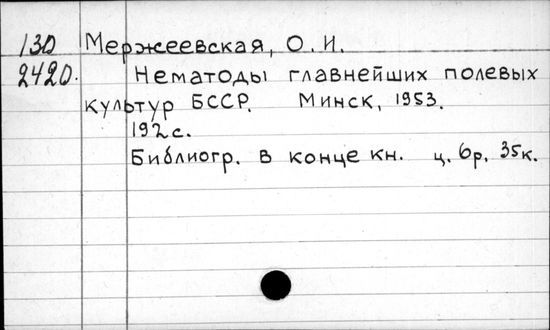 130 Мержеевская, О. И.
2420. Нематоды главнейших полевых
культур БССР. Минск, 1953.
192 с.
Библиогр. в конце кн. ц. 6р. 35к.